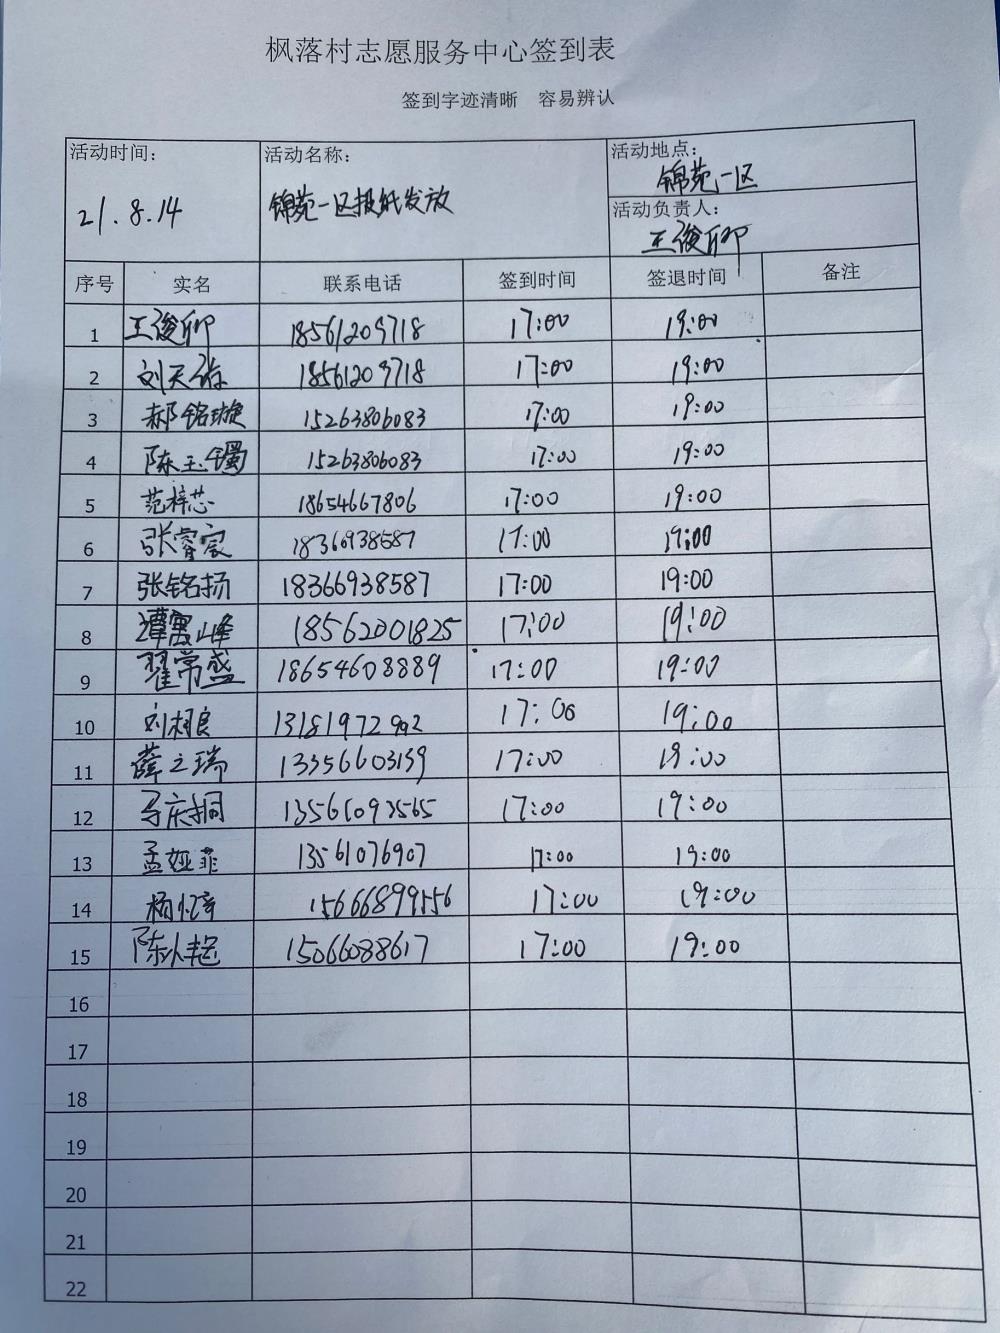 枫落村志愿服务中心签到表
签到字迹清晰 容易辨认
活动时间: 活动名称: 活动地点:
21.8.14 锦苑一区报纸发放 锦苑一区
活动负责人:
王俊卿
序号 实名 联系电话 签到时间 签退时间 备注
1 王俊卿 18561209718 17:00 19:00
2 刘天 18561209718 17:00 19:00
3 郝铭璇 15263806083 17:00 19:00
4 陈玉镯 15263806083 17:00 19:00
5 范梓芯 18654667806 17:00 19:00
6 张睿宸 18366938587 17:00 19:00
7 张铭扬 18366938587 17:00 19:00
8 谭寓峰 18562001825 17:00 19:00
9 翟常盛 18654608889 17:00 19:00
10 刘相良 13181972992 17:00 19:00
11 薛之瑞 13356603159 17:00 19:00
12 马庆桐 13561093565 17:00 19:00
13 孟娅菲 13561076907 17:00 19:00
14 杨忆 15666899556 17:00 19:00
15 陈 15066088617 17:00 19:00
16
17
18
19
20
21
22